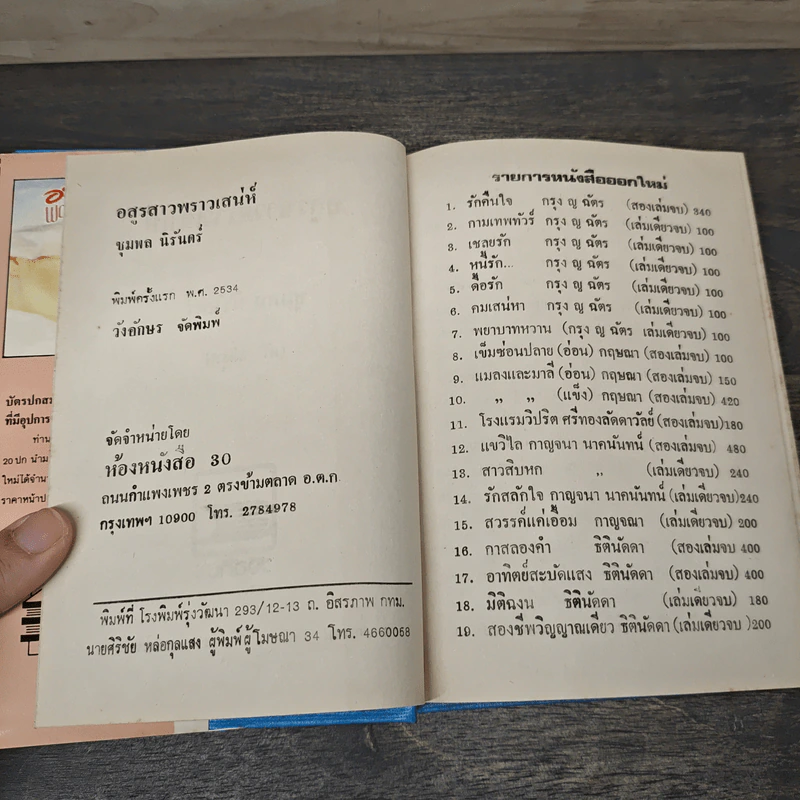 อสูรสาวพราวเสน่ห์
ชุมพล นิรันดร์
พิมพ์ครั้งแรก พ.ศ. 2534
วังอักษร จัดพิมพ์
จัดจำหน่ายโดย
ห้องหนังสือ 30
ถนนกำแพงเพชร 2 ตรงข้ามตลาด อ.ต.ก.
กรุงเทพฯ 10900 โทร. 2784978
พิมพ์ที่ โรงพิมพ์รุ่งวัฒนา 293/12-13 ถ. อิสรภาพ กทม.
นายศิริชัย หล่อกุลแสง ผู้พิมพ์ผู้โฆษณา 34 โทร. 4660058
บัตรปกสว
ที่มีอุปการ
ท่าน
20 ปก นำม
ใหม่ได้จำน
ราคาหน้าป
รายการหนังสือออกใหม่
1. รักคืนใจ กรุง ญ ฉัตร (สองเล่มจบ) 340
2. กามเทพทัวร์ กรุง ญ ฉัตร (เล่มเดียวจบ) 100
3. เชลยรัก กรุง ญ ฉัตร (เล่มเดียวจบ) 100
4. หนี้รัก... กรุง ญ ฉัตร (เล่มเดียวจบ) 100
5. ดื้อรัก กรุง ญ ฉัตร (เล่มเดียวจบ) 100
6. คมเสน่หา กรุง ญ ฉัตร (เล่มเดียวจบ) 100
7. พยาบาทหวาน (กรุง ญ ฉัตร เล่มเดียวจบ) 100
8. เข็มซ่อนปลาย (อ่อน) กฤษณา (สองเล่มจบ) 100
9. แมลงและมาลี (อ่อน) กฤษณา (สองเล่มจบ) 150
10. ,, ,, (แข็ง) กฤษณา (สองเล่มจบ) 420
11. โรงแรมวิปริต ศรีทองลัดดาวัลย์ (สองเล่มจบ)180
12. แขวิไล กาญจนา นาคนันทน์ (สองเล่มจบ) 480
13. สาวสิบหก ,, (เล่มเดียวจบ) 240
14. รักสลักใจ กาญจนา นาคนันทน์ (เล่มเดียวจบ)240
15. สวรรค์แค่เอื้อม กาญจณา (เล่มเดียวจบ) 200
16. กาสลองคำ ธิตินัดดา (สองเล่มจบ 400
17. อาทิตย์สะบัดแสง ธิตินัดดา (สองเล่มจบ) 400
18. มิติฉงน ธิตินัดดา (เล่มเดียวจบ) 180
19. สองชีพวิญญาณเดียว ธิตินัดดา (เล่มเดียวจบ )200